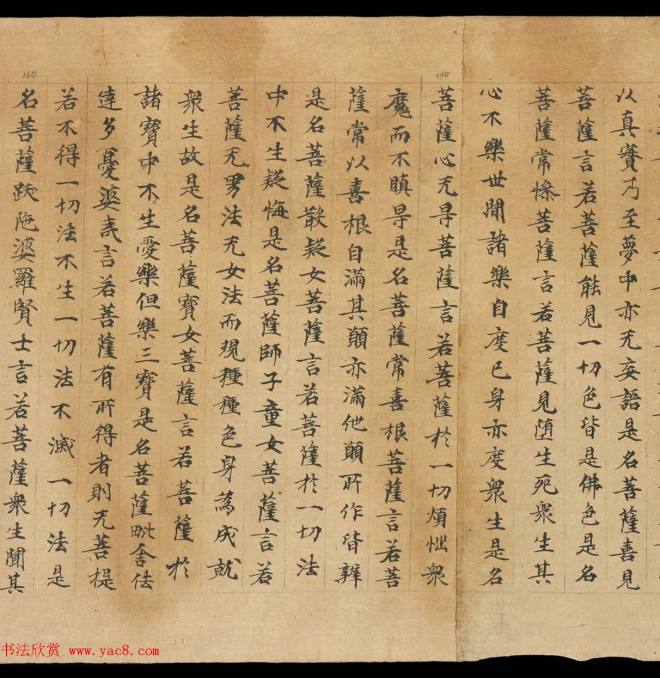 以真實乃至夢中亦无妄語是名菩薩喜見
菩薩言若菩薩能見一切色皆是佛色是名
菩薩常慘菩薩言若菩薩見墮生死衆生其
心不樂世閒諸樂自度已身亦度衆生是名
菩薩心无㝵菩薩言若菩薩於一切煩惱衆
魔而不瞋㝵是名菩薩常喜根菩薩言若菩
薩常以喜根自滿其願亦滿他願所作皆辦
是名菩薩散疑女菩薩言若菩薩於一切法
中不生疑悔是名菩薩師子童女菩薩言若
菩薩无男法无女法而現種種色身為成就
衆生故是名菩薩寶女菩薩言若菩薩於
諸寶中不生愛樂但樂三寶是名菩薩毗舍佉
達多憂婆夷言若菩薩有所得者則无菩提
若不得一切法不生一切法不滅一切法是
名菩薩跋陁婆羅賢士言若菩薩衆生聞其
140
150
书法欣赏 www.yac8.com